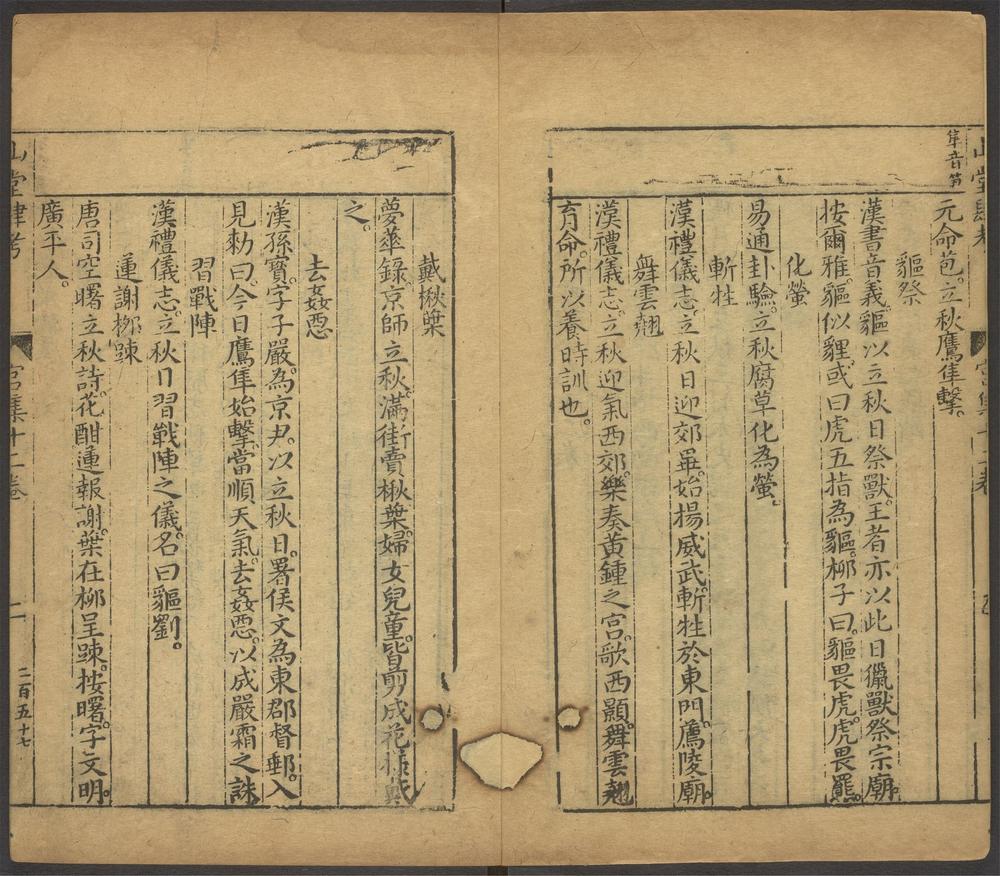 隼音笋
元命苞立秋鷹隼擊。
貙祭
漢書音義貙以立秋日祭獸王者亦以此日獵獸祭宗廟。
按爾雅貙似貍或曰虎五指為貙柳子曰貙畏虎虎畏羆。
化螢
易通卦驗立秋腐草化為螢。
斬牲
漢禮儀志立秋日迎郊畢始揚威武斬牲於東門薦陵廟。
舞雲翹
漢禮儀志立秋迎氣西郊樂奏黃鍾之宮歌西顥舞雲翹
育命所以養時訓也。
戴楸葉
夢華錄京師立秋滿街賣楸葉婦女兒童皆剪成花樣戴
之。
去姦惡
漢孫寶字子嚴為京尹以立秋日署侯文為東郡督郵入
見勑曰今日鷹隼始擊當順天氣去姦惡以成嚴霜之誅
習戰陣
漢禮儀志立秋日習戰陣之儀名曰貙劉。
蓮謝栁踈
唐司空曙立秋詩花酣蓮報謝葉在栁呈踈按曙字文明。
廣平人。
山堂肆考
宮集十二卷
二百五十七